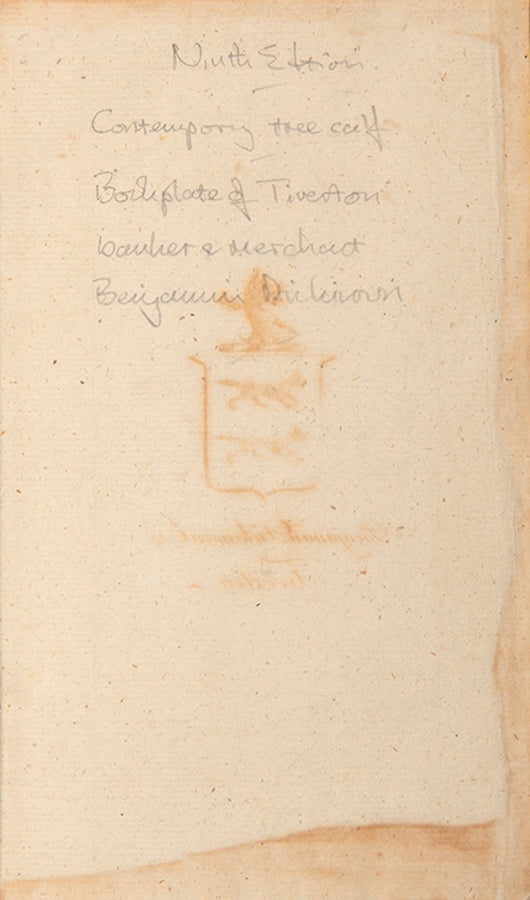 Ninth Edition
Contemporary tree calf
Bookplate of Tiverton
banker & merchant
Benjamin Dickinson